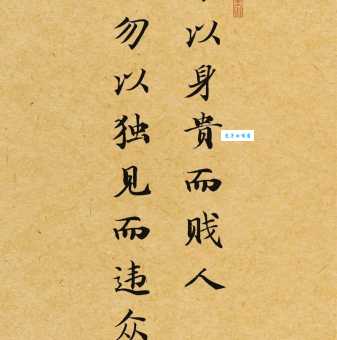 以身貴而贱人
勿以独见而违众